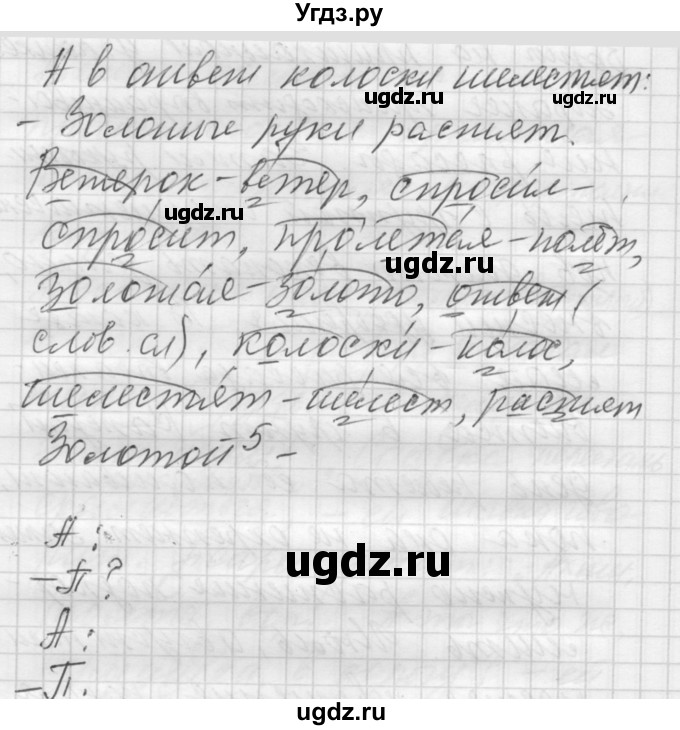 Угдз.ру
А в ответ колоски шелестят:
ugdz.ru ugdz.ru
- Золотые руки растят.
Ветерок - ветер, спросил -
ugdz.ru
спросит, пролетая - полёт,
ugdz.ru
Золотая - золото, ответ (
слов. сл), колоски - колос,
шелестят - шелест, растят
Золотой 5 -
А :
ugdz.ru
- П ?
А :
- П.
ugdz.ru